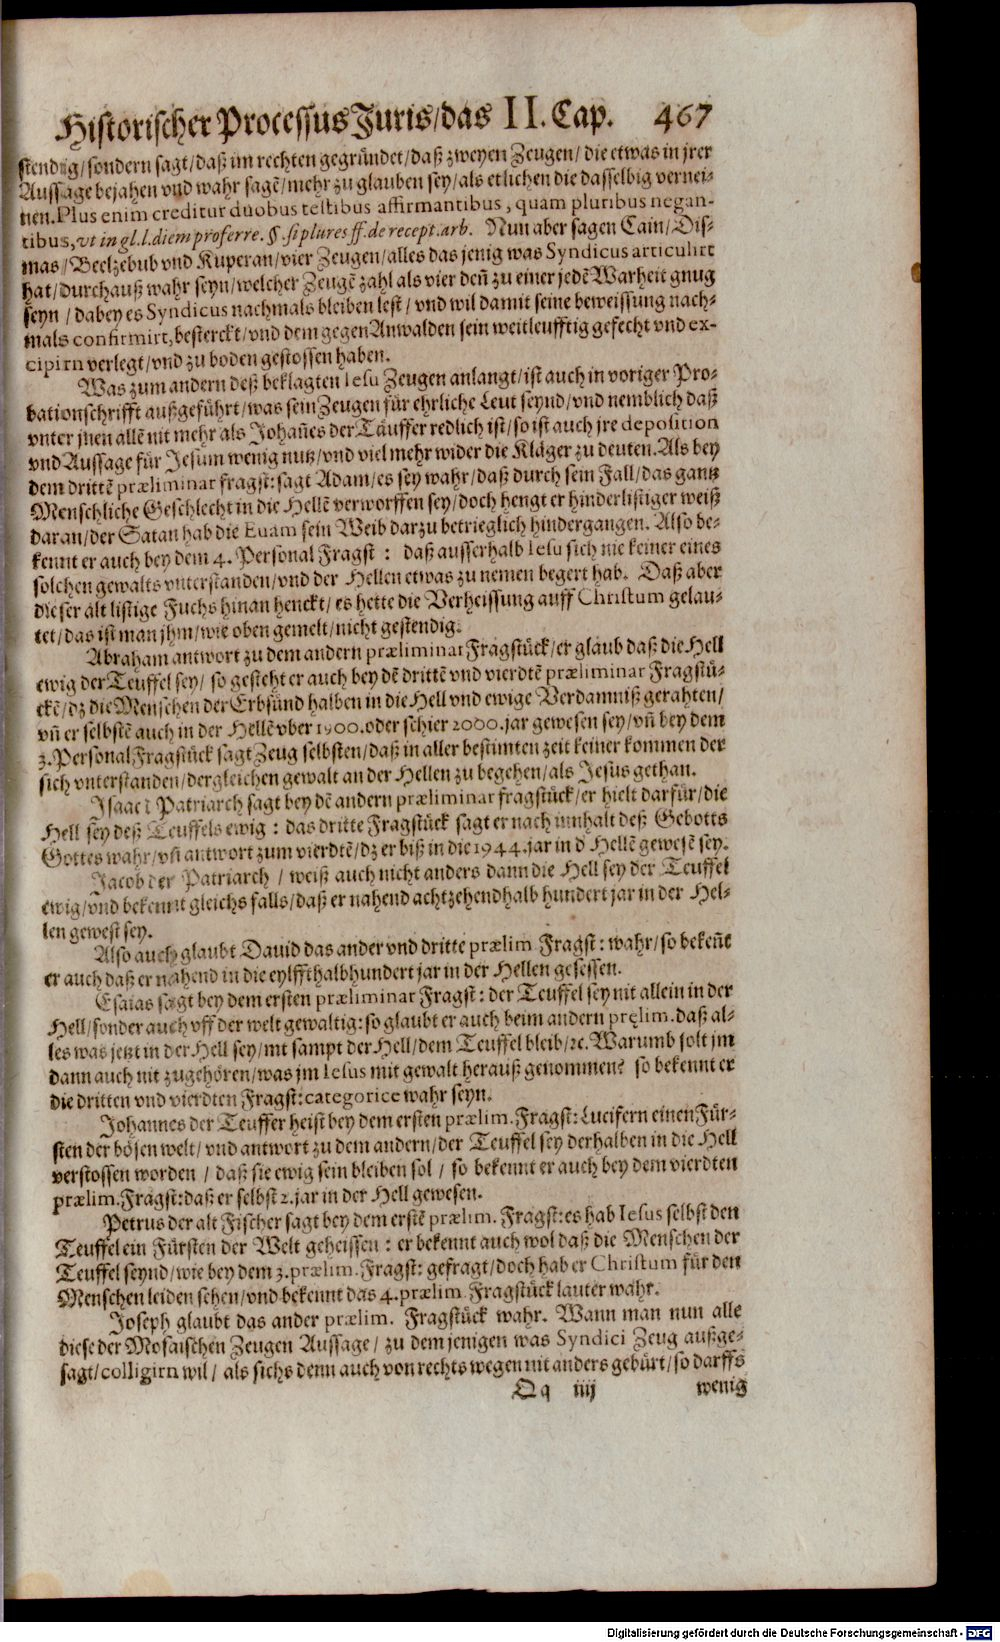 Historischer Processus Juris/das II. Cap. 467
stendig/sondern sagt/daß im rechten gegründet/daß zweyen Zeugen/ die etwas in jrer
Aussage bejahen vnd wahr sagẽ/mehr zu glauben sey/als etlichen die dasselbig vernei-
nen. Plus enim creditur duobus testibus affirmantibus, quam pluribus negan-
tibus, vt in gl. l. diem proferre. §. si plures ff. de recept. arb. Nun aber sagen Cain/Dis-
mas/Beelzebub vnd Kuperan/vier Zeugen/alles das jenig was Syndicus articulirt
hat/durchauß wahr seyn/welcher Zeugẽ zahl als vier deñ zu einer jedẽ Warheit gnug
seyn / dabey es Syndicus nachmals bleiben lest/ vnd wil damit seine beweissung nach-
mals confirmirt, besterckt/vnd dem gegen Anwalden sein weitleufftig gefecht vnd ex-
cipirn verlegt/vnd zu boden gestossen haben.
Was zum andern deß beklagten Iesu Zeugen anlangt/ist auch in voriger Pro-
bationschrifft außgeführt/was sein Zeugen für ehrliche Leut seynd/vnd nemblich daß
vnter jnen allẽ nit mehr als Johañes der Täuffer redlich ist/so ist auch jre deposition
vnd Aussage für Jesum wenig nutz/vnd viel mehr wider die Kläger zu deuten. Als bey
dem drittẽ præliminar fragst: sagt Adam/es sey wahr/daß durch sein Fall/das gantz
Menschliche Geschlecht in die Hellẽ verworffen sey/doch hengt er hinderlistiger weiß
daran/der Satan hab die Euam sein Weib darzu betrieglich hindergangen. Also be-
kennt er auch bey dem 4. Personal Fragst : daß ausserhalb Iesu sich nie keiner eines
solchen gewalts vnterstanden/vnd der Hellen etwas zu nemen begert hab. Daß aber
dieser alt listige Fuchs hinan henckt/ es hette die Verheissung auff Christum gelau-
tet/das ist man jhm/wie oben gemelt/nicht gestendig.
Abraham antwort zu dem andern præliminar Fragstück/er glaub daß die Hell
ewig der Teuffel sey/ so gesteht er auch bey dẽ drittẽ vnd vierdtẽ præliminar Fragstü-
ckẽ/dz die Menschen der Erbsünd halben in die Hell vnd ewige Verdamniß gerahten/
vñ er selbstẽ auch in der Hellẽ vber 1900. oder schier 2000. jar gewesen sey/vñ bey dem
3. Personal Fragstück sagt Zeug selbsten/daß in aller bestimten zeit keiner kommen der
sich vnterstanden/dergleichen gewalt an der Hellen zu begehen/als Jesus gethan.
Isaac Patriarch sagt bey dẽ andern præliminar fragstück/er hielt darfür/die
Hell sey deß Teuffels ewig : das dritte Fragstück sagt er nach innhalt deß Gebotts
Gottes wahr/vñ antwort zum vierdtẽ/dz er biß in die 1944. jar in d' Hellẽ gewesẽ sey.
Jacob der Patriarch / weiß auch nicht anders dann die Hell sey der Teuffel
ewig/vnd bekennt gleichs falls/daß er nahend achtzehendhalb hundert jar in der Hel-
len gewest sey.
Also auch glaubt Dauid das ander vnd dritte prælim Fragst : wahr/so bekeñt
er auch daß er nahend in die eylffthalbhundert jar in der Hellen gesessen.
Esaias sagt bey dem ersten præliminar Fragst : der Teuffel sey nit allein in der
Hell/sonder auch vff der welt gewaltig: so glaubt er auch beim andern pręlim. daß al-
les was jetzt in der Hell sey/mt sampt der Hell/dem Teuffel bleib/ꝛc. Warumb solt jm
dann auch nit zugehören/was jm Iesus mit gewalt herauß genommen? so bekennt er
die dritten vnd vierdten Fragst: categorice wahr seyn.
Johannes der Teuffer heist bey dem ersten prælim. Fragst: Lucifern einen Für-
sten der bösen welt/ vnd antwort zu dem andern/der Teuffel sey derhalben in die Hell
verstossen worden / daß sie ewig sein bleiben sol / so bekennt er auch bey dem vierdten
prælim. Fragst: daß er selbst 2. jar in der Hell gewesen.
Petrus der alt Fischer sagt bey dem erstẽ prælim. Fragst: es hab Iesus selbst den
Teuffel ein Fürsten der Welt geheissen : er bekennt auch wol daß die Menschen der
Teuffel seynd/wie bey dem 3. prælim. Fragst: gefragt/doch hab er Christum für den
Menschen leiden sehen/vnd bekennt das 4. prælim. Fragstück lauter wahr.
Joseph glaubt das ander prælim. Fragstück wahr. Wann man nun alle
diese der Mosaischen Zeugen Aussage / zu dem jenigen was Syndici Zeug außge-
sagt/colligirn wil/ als sichs denn auch von rechts wegen nit anders gebürt/so darffs
Qq iiij wenig
Digitalisierung gefördert durch die Deutsche Forschungsgemeinschaft - DFG